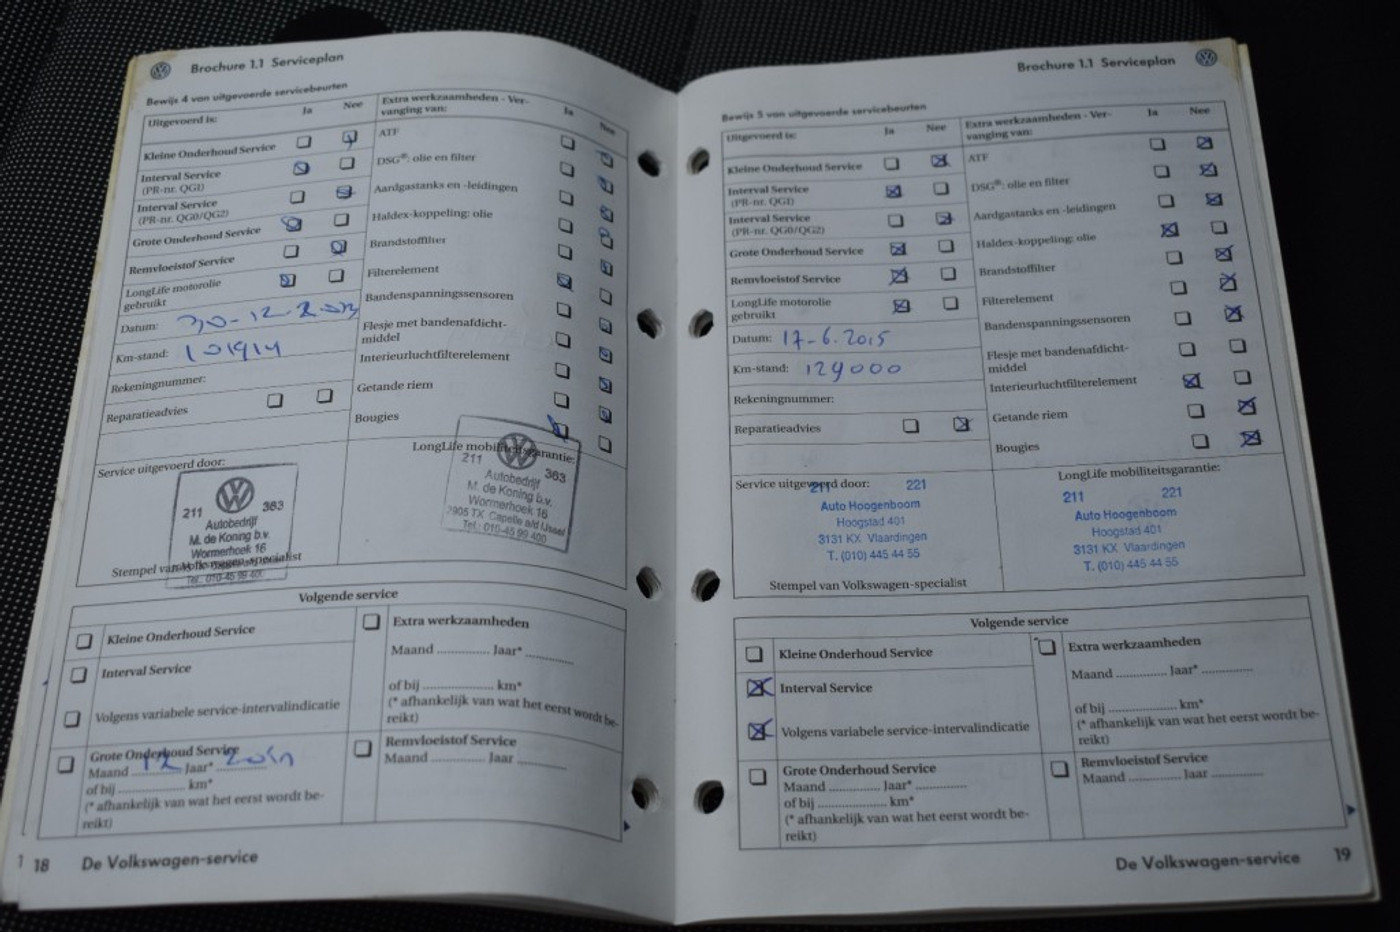 Brochure 1.1 Serviceplan
Bewijs 4 van uitgevoerde servicebeurten
Uitgevoerd is:
Ja
Nee
Kleine Onderhoud Service
Interval Service
(PR-nr. QGI)
Interval Service
(PR-nr. QG0/QG2)
Grote Onderhoud Service
Remvloeistof Service
LongLife motorolie
gebruikt
Datum: 30-12-2013
Km-stand: 101914
Rekeningnummer:
Reparatieadvies
Extra werkzaamheden - Ver-
vanging van:
Ja
Nee
ATF
DSG®: olie en filter
Aardgastanks en -leidingen
Haldex-koppeling: olie
Brandstoffilter
Filterelement
Bandenspanningssensoren
Flesje met bandenafdicht-
middel
Interieurluchtfilterelement
Getande riem
Bougies
Service uitgevoerd door:
211 363
Autobedrijf
M. de Koning b.v.
Wormerhoek 16
Tel.: 010-45 99 400
Stempel van Volkswagen-specialist
LongLife mobiliteitsgarantie:
211 363
Autobedrijf
M. de Koning b.v.
Wormerhoek 16
2905 TX Capelle a/d IJssel
Tel.: 010-45 99 400
Volgende service
Kleine Onderhoud Service
Interval Service
Volgens variabele service-intervalindicatie
Grote Onderhoud Service
Maand 12 Jaar*
of bij ............... km*
(* afhankelijk van wat het eerst wordt be-
reikt)
Extra werkzaamheden
Maand ............. Jaar* ............
of bij ............... km*
(* afhankelijk van wat het eerst wordt be-
reikt)
Remvloeistof Service
Maand ............. Jaar ............
18 De Volkswagen-service
Brochure 1.1 Serviceplan
Bewijs 5 van uitgevoerde servicebeurten
Uitgevoerd is:
Ja
Nee
Kleine Onderhoud Service
Interval Service
(PR-nr. QGI)
Interval Service
(PR-nr. QG0/QG2)
Grote Onderhoud Service
Remvloeistof Service
LongLife motorolie
gebruikt
Datum: 17-6-2015
Km-stand: 129000
Rekeningnummer:
Reparatieadvies
Extra werkzaamheden - Ver-
vanging van:
Ja
Nee
ATF
DSG®: olie en filter
Aardgastanks en -leidingen
Haldex-koppeling: olie
Brandstoffilter
Filterelement
Bandenspanningssensoren
Flesje met bandenafdicht-
middel
Interieurluchtfilterelement
Getande riem
Bougies
Service uitgevoerd door:
211 221
Auto Hoogenboom
Hoogstad 401
3131 KX Vlaardingen
T. (010) 445 44 55
Stempel van Volkswagen-specialist
LongLife mobiliteitsgarantie:
211 221
Auto Hoogenboom
Hoogstad 401
3131 KX Vlaardingen
T. (010) 445 44 55
Volgende service
Kleine Onderhoud Service
Interval Service
Volgens variabele service-intervalindicatie
Grote Onderhoud Service
Maand ............. Jaar* ............
of bij ............... km*
(* afhankelijk van wat het eerst wordt be-
reikt)
Extra werkzaamheden
Maand ............. Jaar* ............
of bij ............... km*
(* afhankelijk van wat het eerst wordt be-
reikt)
Remvloeistof Service
Maand ............. Jaar ............
De Volkswagen-service 19